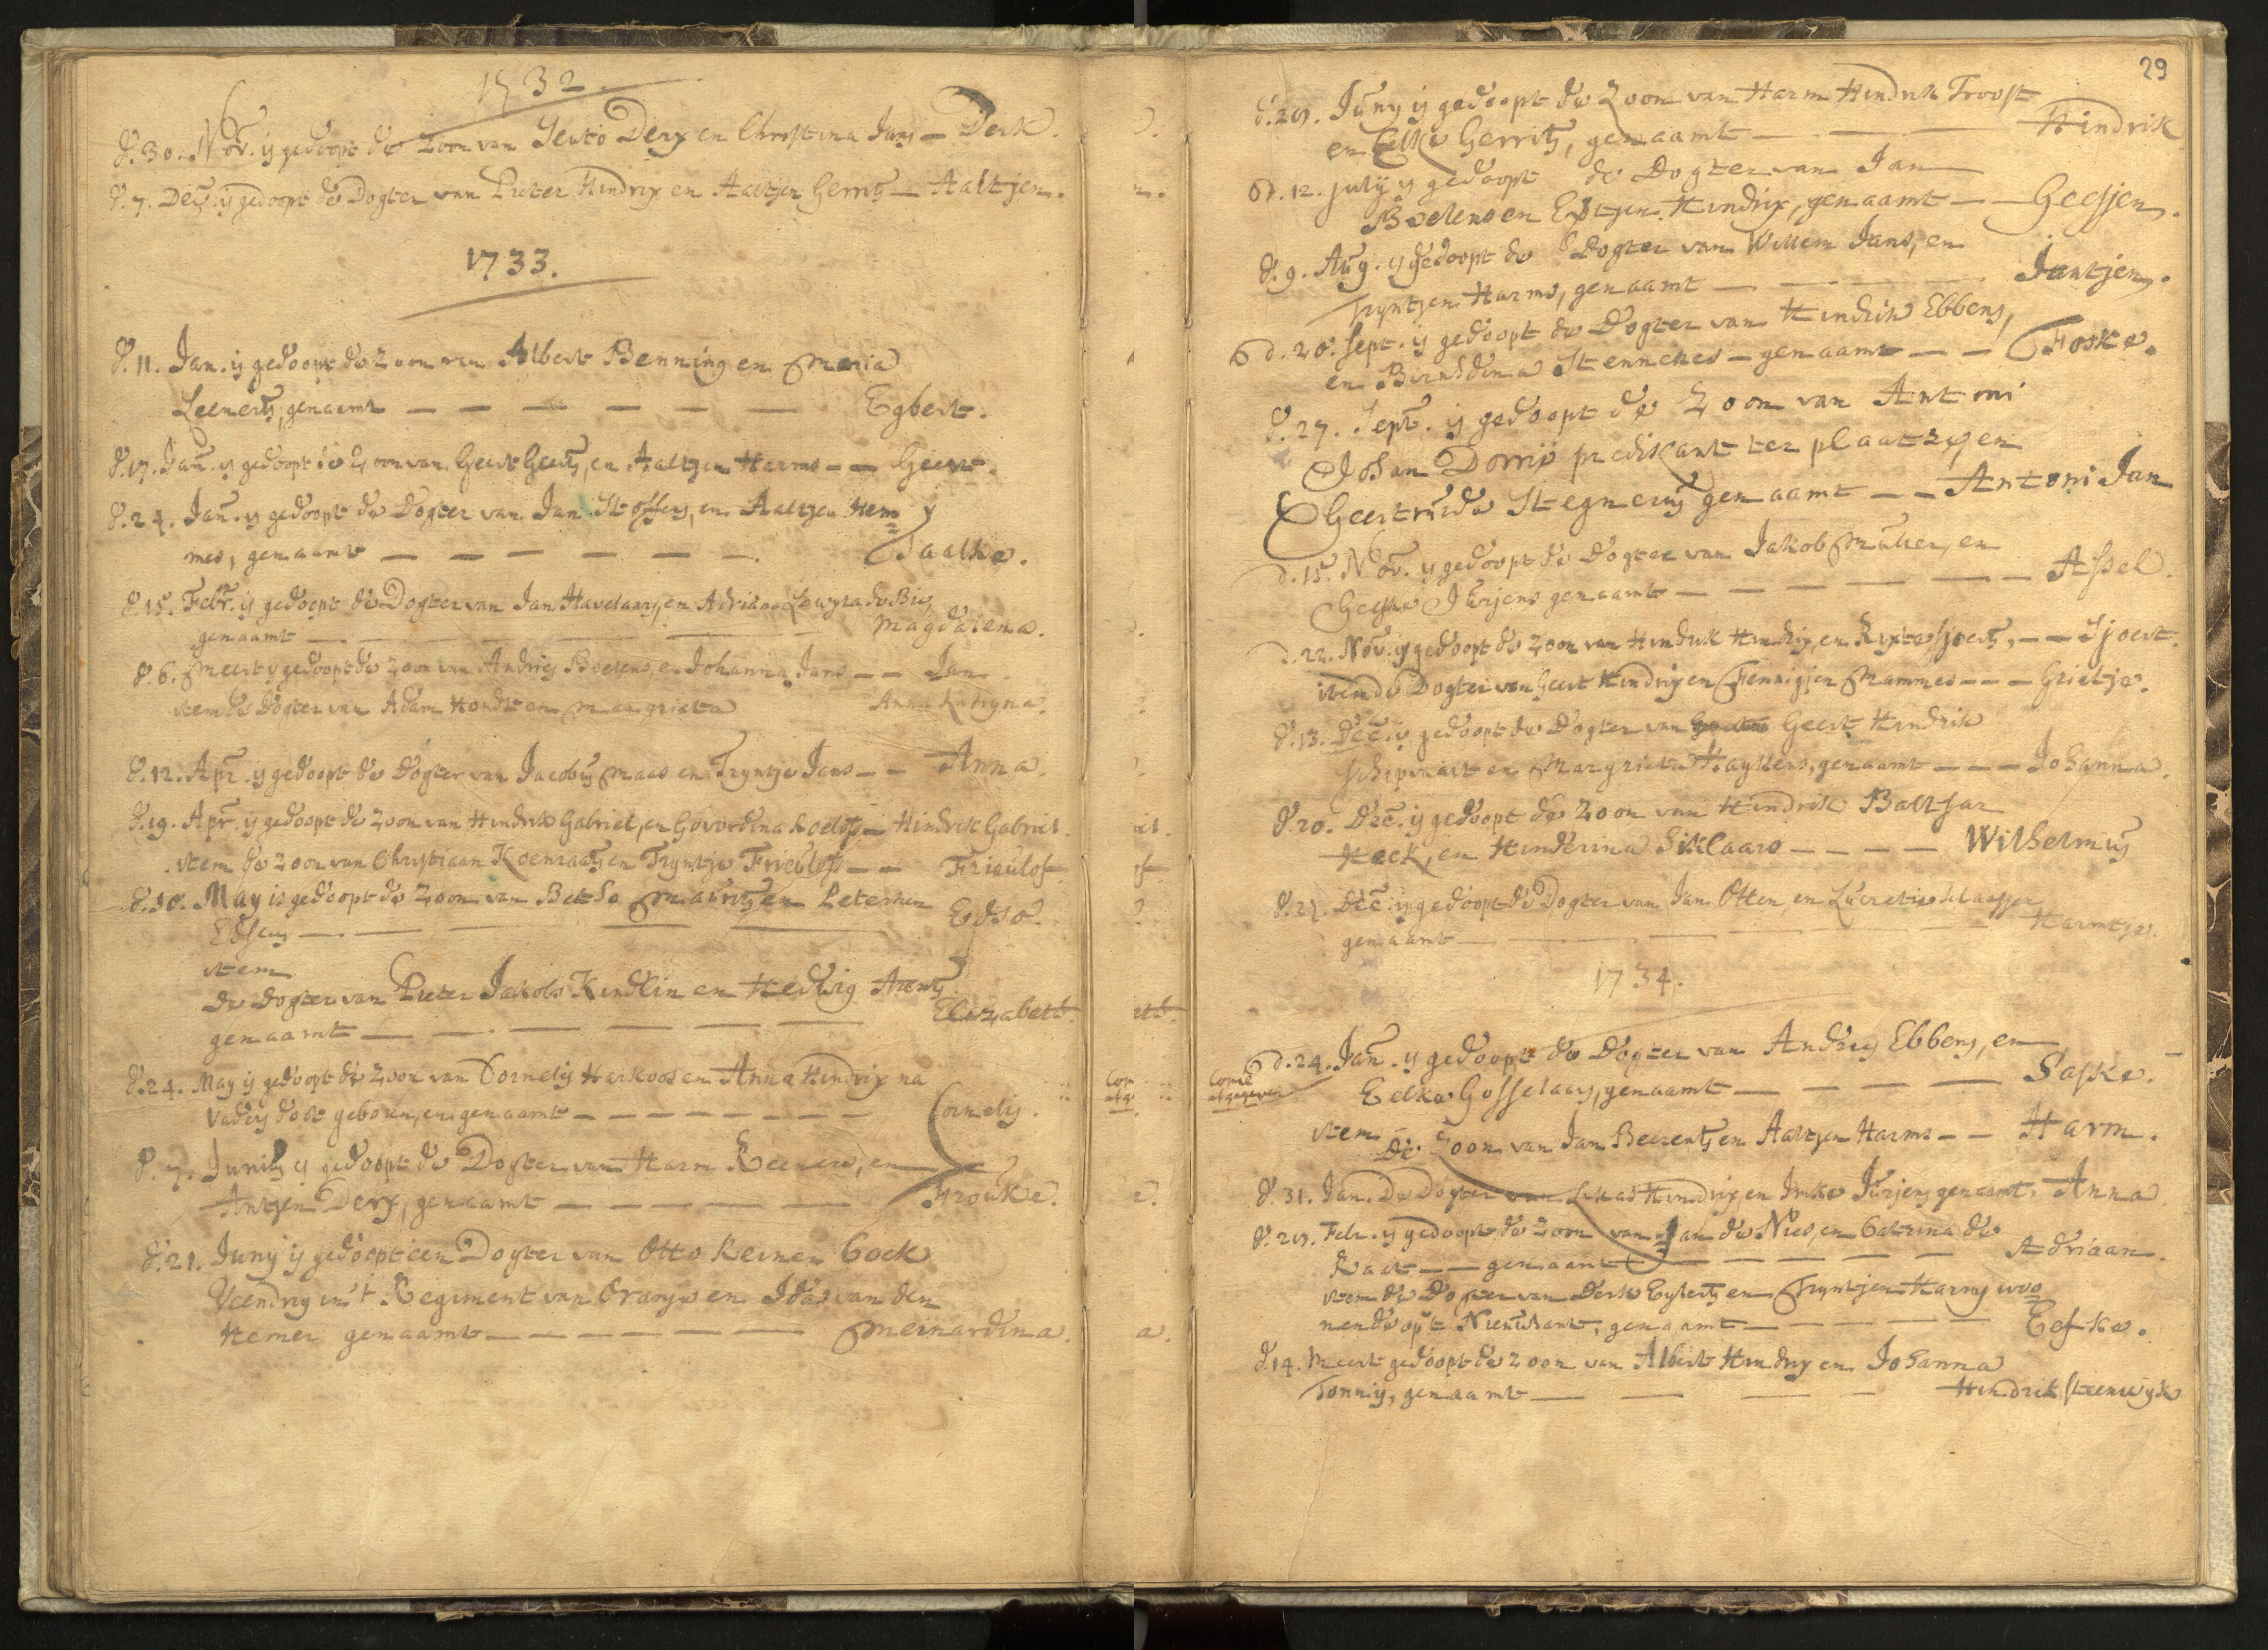 1732.
d. 30. Nov. is gedoopt de Zoon van Derx en Christina Jans — Derk.
d. 7. Dec. is gedoopt de Dogter van Pieter Hindrix en Aaltjen Gerrits — Aaltjen.
1733.
d. 11. Jan. is gedoopt de Zoon van Albert Benning en Maria
Leenerts, genaamt — — — — — — Egbert.
d. 17. Jan. is gedoopt de Zoon van Geert Geerts, en Aaltjen Harms — — Geert.
d. 24. Jan. is gedoopt de Dogter van Jan Stoffers, en Aaltjen Hem=
mes, genaamt — — — — — — Taalke.
d. 15. Febr. is gedoopt de Dogter van Jan Havelaars, en Adriana de Bie,
genaamt — — — — Magdalena.
d. 6. Meert is gedoopt de Zoon van Andries Beerens, en Johanna Jans — — Jan.
item de Dogter van Adam Hondt en Margrieta Anna Katryna.
d. 12. Apr. is gedoopt de Dogter van Jacobus Maas en Tryntje Jans — — Anna.
d. 19. Apr. is gedoopt de Zoon van Hindrik Gabriel, en Govordina Roelofs — Hindrik Gabriel.
item de Zoon van Christiaan Koenraats en Tryntje Frieulofs — — Frieulof.
d. 10. May is gedoopt de Zoon van Maurits en Peterken
Edses — — — — — Edso.
item
de Dogter van Pieter Jakobs Kindlin en Hedwig Arents
genaamt — — — — — — Elizabeth.
d. 24. May is gedoopt de Zoon van Cornelis Harkoos en Anna Hindrix na
vaders doot geboren, en genaamt — — — — — — Cornelis.
d. 7. Junius is gedoopt de Dogter van Harm Reeners, en
Antjen Derx, genaamt — — — — — — Frouke.
d. 21. Juny is gedoopt een Dogter van Otto Reiner Cock
Veendrig in 't Regiment van Oranje en Ida van den
Hemer genaamt — — — — — — Meinardina.
29
Juny is gedoopt de Zoon van Harm Hindrik Troost
en Elske Gerrits, genaamt — — — Hindrik
d. 12. july is gedoopt de Dogter van Jan
Boelens en Hindrix, genaamt — — Geesjen.
d. 9. Aug. is gedoopt de Dogter van Willem Jans, en
Tryntjen Harms, genaamt — — — — Jantjen.
d. 20. Sept. is gedoopt de Dogter van Hindrik Ebbens,
en Berndina Stennekes — genaamt — — Foske.
d. 27. Sept. is gedoopt de Zoon van Antoni
Johan predikant ter plaatzen en
Geertruida Stegnerus genaamt — — Antoni Jan
d. 15. Nov. is gedoopt de Dogter van Jakob Muller, en
Geeske Jurjens genaamt — — — — — Assel.
d. 22. Nov. is gedoopt de Zoon van Hindrik Hindrix, en Rixte Sjoerts, — — Sjoert.
item de Dogter van Geert Hindrix en Fennigjen Mammes — — — Grietje.
d. 13. Dec. is gedoopt de Dogter van Geert Hindrik
en Margrieta Haykens, genaamt — — — Johanna.
d. 20. Dec. is gedoopt de Zoon van Hindrik Baltsar
Heck, en Hinderina Siklaars — — — — Wilhelmus
d. 27. Dec. is gedoopt de Dogter van Jan Otten, en Lucretia Claassen
genaamt — — — — — Harmtje.
1734.
d. 24. Jan. is gedoopt de Dogter van Andries Ebbens, en
Copie
uitgegeven
Eelke Gosselaars, genaamt — — — — Saske.
item de Zoon van Jan Beerents en Aaltjen Harms — — Harm.
d. 31. Jan. De Dogter van Lukas Hindrix en Imke Jurjens genaamt, Anna
Febr. is gedoopt de Zoon van Jan de Nies, en Catrina de
Raat — — genaamt — — — — Adriaan.
item de Dogter van Derk Eylerts en Tryntjen Harms woo=
nende op 't Nieuwkant, genaamt — — — — Eefke.
d. 14. Meert gedoopt de Zoon van Albert Hindrix en Johanna
Tonnis, genaamt — — — — Hindrik Steenwyk